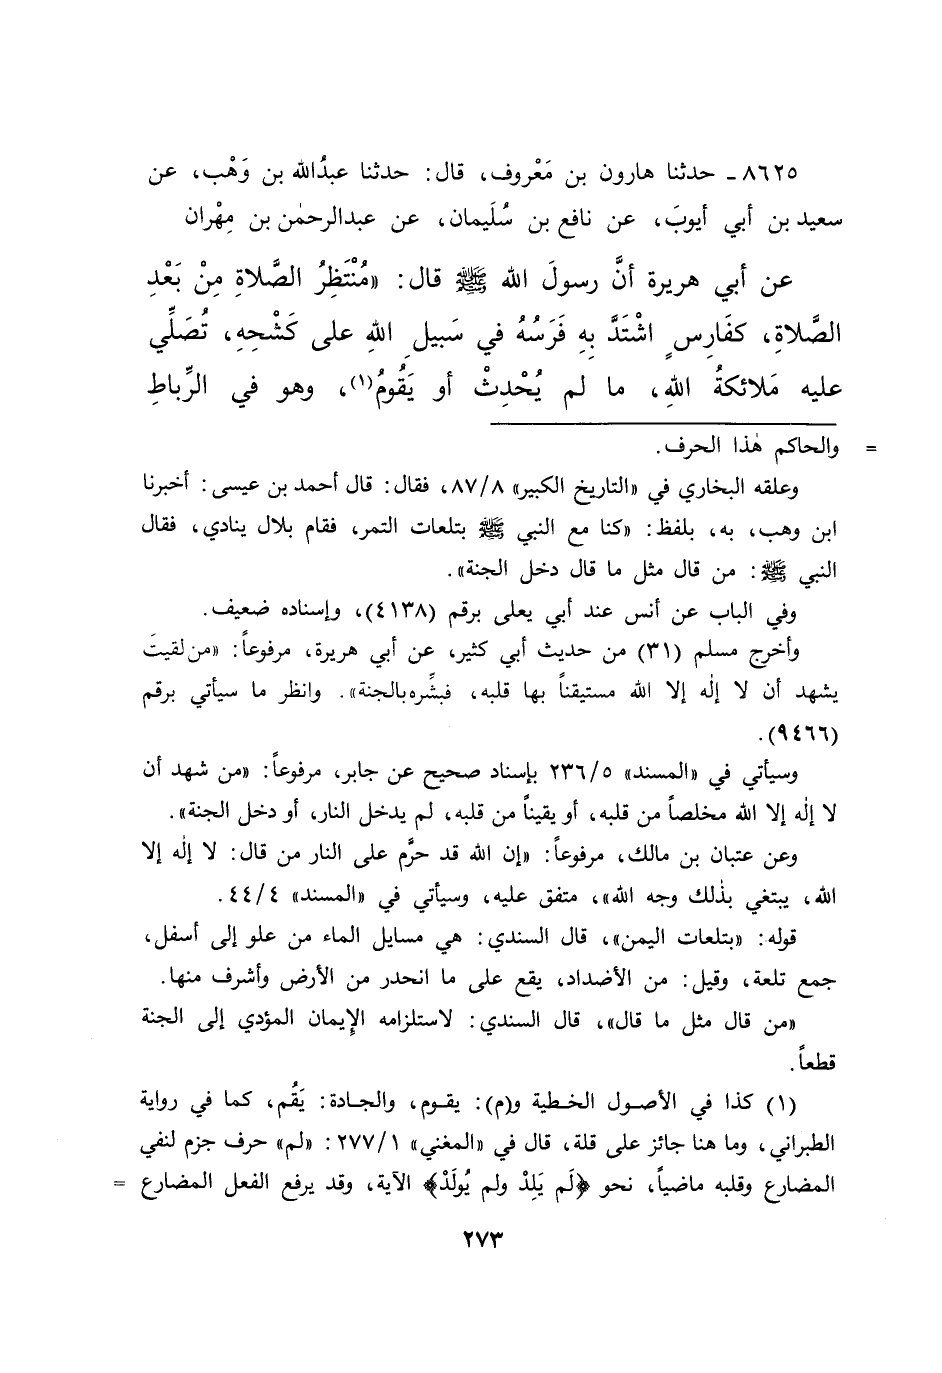 ٨٦٢٥ - حدثنا هارون بن مَعْروف، قال: حدثنا عبدُالله بن وَهْب، عن
سعيد بن أبي أيوبَ، عن نافع بن سُلَيمان، عن عبدالرحمٰن بن مِهْران
عن أبي هريرة أنَّ رسولَ الله ﷺ قال: «مُنْتَظِرُ الصَّلاةِ مِنْ بَعْدِ
الصَّلاةِ، كفَارِسٍ اشْتَدَّ بِهِ فَرَسُهُ في سَبيلِ اللهِ على كَشْحِهِ، تُصَلِّي
عليه مَلائكةُ اللهِ، ما لم يُحْدِثْ أو يَقُومُ(١)، وهو في الرِّباطِ
= والحاكم هٰذا الحرف.
وعلقه البخاري في «التاريخ الكبير» ٨٧/٨، فقال: قال أحمد بن عيسى: أخبرنا
ابن وهب، به، بلفظ: «كنا مع النبي ﷺ بتلعات التمر، فقام بلال ينادي، فقال
النبي ﷺ: من قال مثل ما قال دخل الجنة».
وفي الباب عن أنس عند أبي يعلى برقم (٤١٣٨)، وإسناده ضعيف.
وأخرج مسلم (٣١) من حديث أبي كثير، عن أبي هريرة، مرفوعاً: «من لقيتَ
يشهد أن لا إلٰه إلا الله مستيقناً بها قلبه، فبشِّره بالجنة». وانظر ما سيأتي برقم
(٩٤٦٦).
وسيأتي في «المسند» ٢٣٦/٥ بإسناد صحيح عن جابر، مرفوعاً: «من شهد أن
لا إلٰه إلا الله مخلصاً من قلبه، أو يقيناً من قلبه، لم يدخل النار، أو دخل الجنة».
وعن عتبان بن مالك، مرفوعاً: «إن الله قد حرَّم على النار من قال: لا إلٰه إلا
الله، يبتغي بذٰلك وجه الله»، متفق عليه، وسيأتي في «المسند» ٤٤/٤.
قوله: «بتلعات اليمن»، قال السندي: هي مسايل الماء من علو إلى أسفل،
جمع تلعة، وقيل: من الأضداد، يقع على ما انحدر من الأرض وأشرف منها.
«من قال مثل ما قال»، قال السندي: لاستلزامه الإيمان المؤدي إلى الجنة
قطعاً.
(١) كذا في الأصول الخطية و(م): يقوم، والجادة: يَقُم، كما في رواية
الطبراني، وما هنا جائز على قلة، قال في «المغني» ٢٧٧/١: «لم» حرف جزم لنفي
المضارع وقلبه ماضياً، نحو ﴿لَم يَلِدْ ولم يُولَدْ﴾ الآية، وقد يرفع الفعل المضارع =
٢٧٣